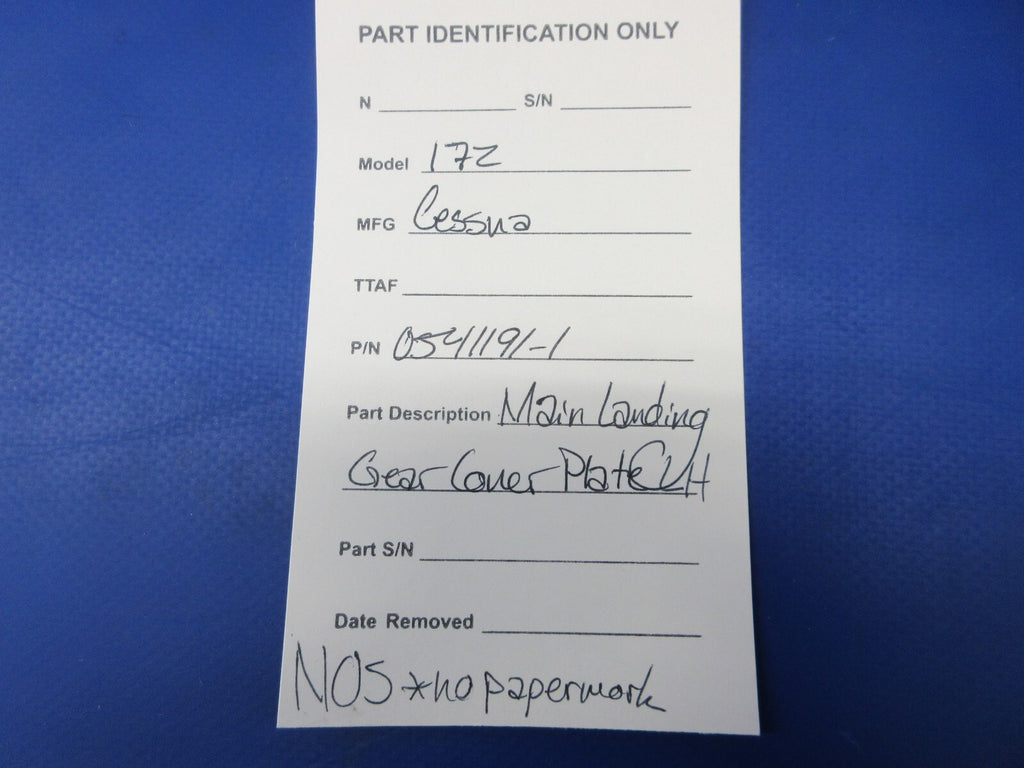 PART IDENTIFICATION ONLY
N S/N
Model 172
MFG Cessna
TTAF
P/N 0541191-1
Part Description Main Landing
Gear Cover Plate LH
Part S/N
Date Removed
NOS *no paperwork